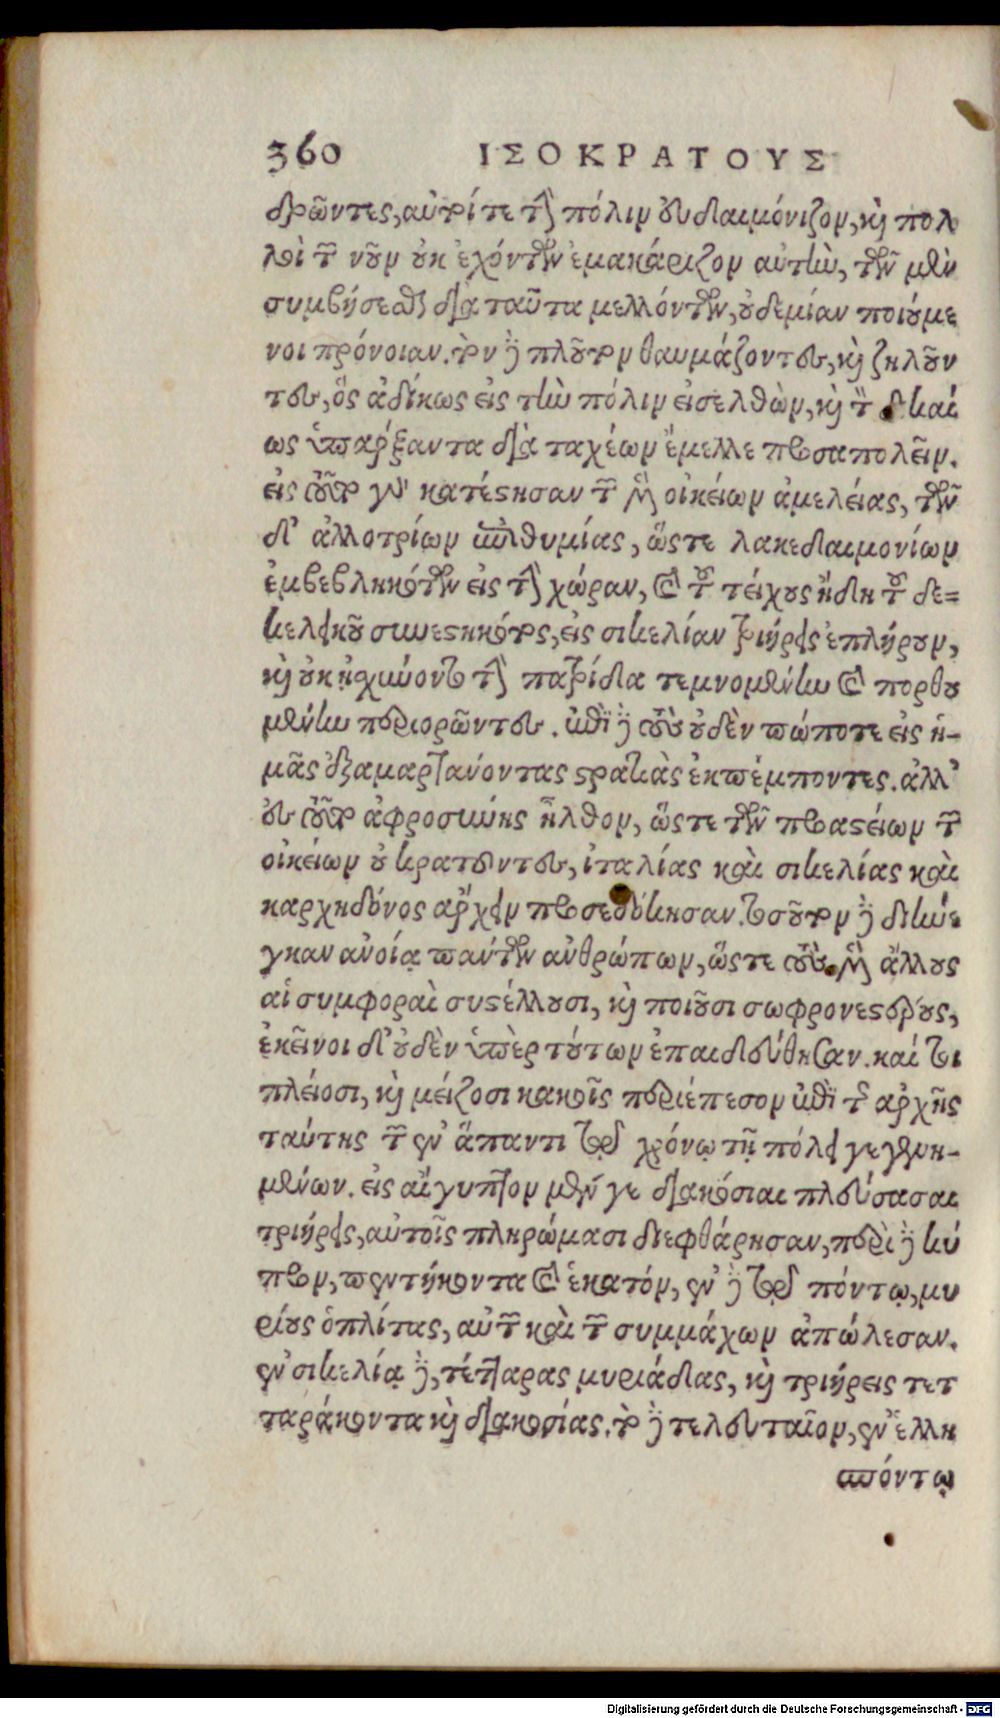 360 ΙΣΟΚΡΑΤΟΥΣ
δρῶντες, αὐτοί τε τὴν πόλιν εὐδαιμόνιζον, καὶ πολ
λοὶ τῶν νοῦν οὐκ ἐχόντων ἐμακάριζον αὐτὴν, τῶν μὲν
συμβήσεσθαι διὰ ταῦτα μελλόντων, οὐδεμίαν ποιούμε
νοι πρόνοιαν. τὸν δὲ πλοῦτον θαυμάζοντες, καὶ ζηλοῦν
τες, ὃς ἀδίκως εἰς τὴν πόλιν εἰσελθὼν, καὶ τὸν δικαί
ως ὑπάρξαντα διὰ ταχέων ἔμελλε προσαπολεῖν.
εἰς τοῦτο γὰρ κατέστησαν τῶν μὲν οἰκείων ἀμελείας, τῶν
δ' ἀλλοτρίων ἐπιθυμίας, ὥστε λακεδαιμονίων
ἐμβεβληκότων εἰς τὴν χώραν, καὶ τοῦ τείχους ἤδη τοῦ δε=
κελειοῦ συνεστηκότος, εἰς σικελίαν τριήρεις ἐπλήρουν,
καὶ οὐκ ᾐσχύνοντο τὴν πατρίδα τεμνομένην καὶ πορθου
μένην περιορῶντες. ἐπὶ δὲ τοὺς οὐδὲν πώποτε εἰς ἡ-
μᾶς ἐξαμαρτανόντας στρατιὰς ἐκπέμποντες. ἀλλ'
εἰς τοῦτο ἀφροσύνης ἦλθον, ὥστε τῶν προαστείων τῶν
οἰκείων οὐ κρατοῦντες, ἰταλίας καὶ σικελίας καὶ
καρχηδόνος ἄρχειν προσεδόκησαν. τοσοῦτον δὲ διήνε
γκαν ἀνοίᾳ πάντων ἀνθρώπων, ὥστε τοὺς μὲν ἄλλους
αἱ συμφοραὶ συστέλλουσι, καὶ ποιοῦσι σωφρονεστέρους,
ἐκεῖνοι δ' οὐδὲν ὑπὲρ τούτων ἐπαιδεύθησαν. καί τοι
πλείοσι, καὶ μείζοσι κακοῖς περιέπεσον ἐπὶ τῆς ἀρχῆς
ταύτης τῶν ἐν ἅπαντι τῷ χρόνῳ τῇ πόλει γεγενη-
μένων. εἰς αἴγυπτον μέν γε διακόσιαι πλεύσασαι
τριήρεις, αὐτοῖς πληρώμασι διεφθάρησαν, περὶ δὲ κύ
προν, πεντήκοντα καὶ ἑκατόν, ἐν δὲ τῷ πόντῳ, μυ
ρίους ὁπλίτας, αὐτῶν καὶ τῶν συμμάχων ἀπώλεσαν.
ἐν σικελίᾳ δὲ, τέτταρας μυριάδας, καὶ τριήρεις τετ
ταράκοντα καὶ διακοσίας. τὸ δὲ τελευταῖον, ἐν ἑλλη
σπόντῳ
Digitalisierung gefördert durch die Deutsche Forschungsgemeinschaft - DFG